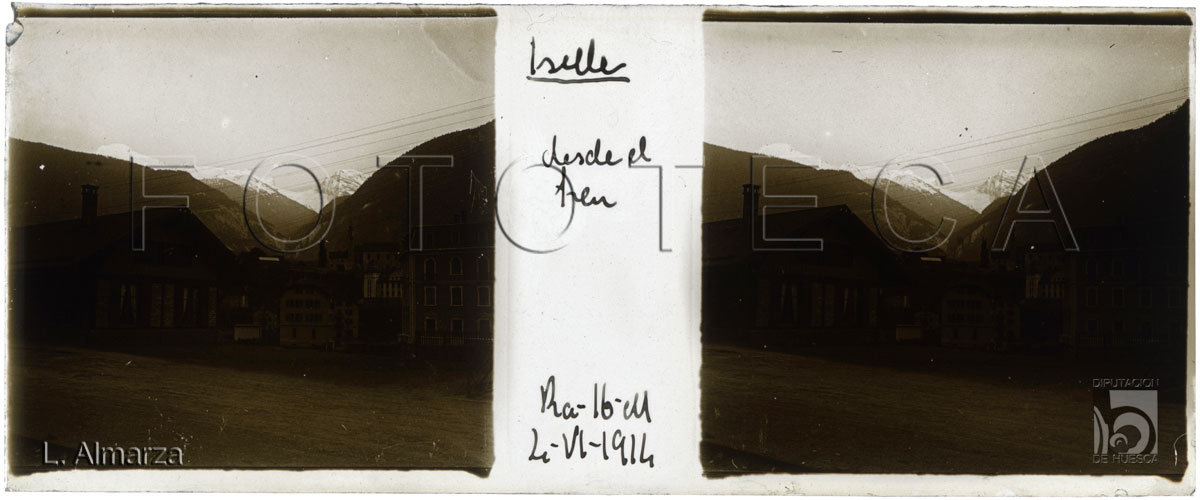 Iselle
desde el
tren
Ra-16-M
2-VI-1914
FOTOTECA
L. Almarza
DIPUTACION
DE HUESCA